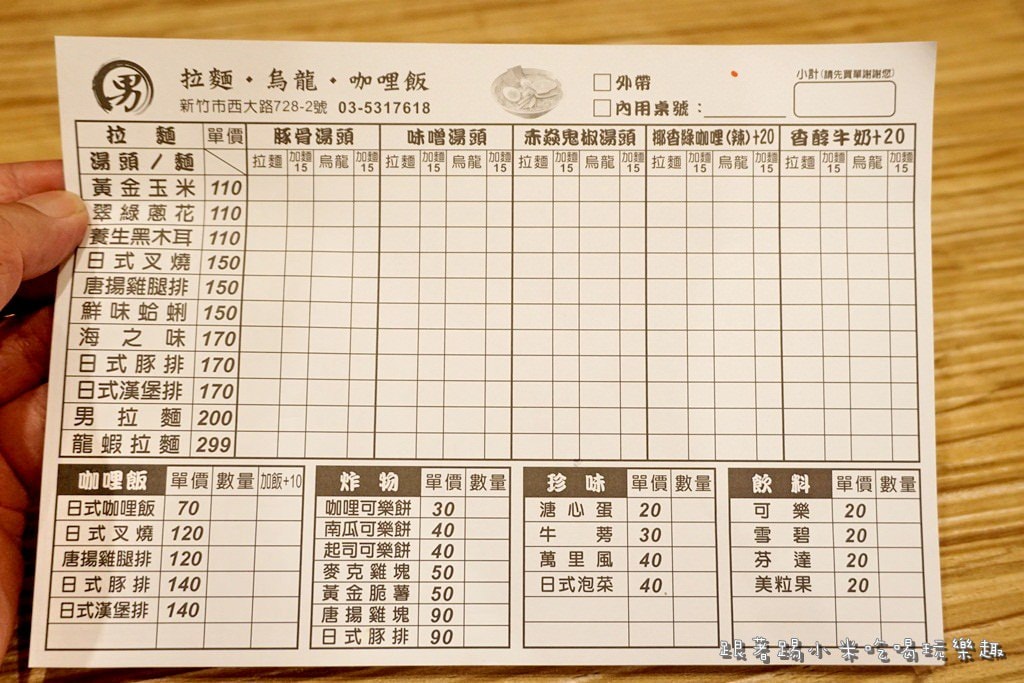 男
拉麵・烏龍・咖哩飯
新竹市西大路728-2號 03-5317618
外帶
內用桌號：
小計(請先買單謝謝您)
拉麵 單價 豚骨湯頭 味噌湯頭 赤焱鬼椒湯頭 椰香綠咖哩(辣)+20 香醇牛奶+20
湯頭/麵 拉麵 加麵15 烏龍 加麵15 拉麵 加麵15 烏龍 加麵15 拉麵 加麵15 烏龍 加麵15 拉麵 加麵15 烏龍 加麵15 拉麵 加麵15 烏龍 加麵15
黃金玉米 110
翠綠蔥花 110
養生黑木耳 110
日式叉燒 150
唐揚雞腿排 150
鮮味蛤蜊 150
海之味 170
日式豚排 170
日式漢堡排 170
男拉麵 200
龍蝦拉麵 299
咖哩飯 單價 數量 加飯+10
日式咖哩飯 70
日式叉燒 120
唐揚雞腿排 120
日式豚排 140
日式漢堡排 140
炸物 單價 數量
咖哩可樂餅 30
南瓜可樂餅 40
起司可樂餅 40
麥克雞塊 50
黃金脆薯 50
唐揚雞塊 90
日式豚排 90
珍味 單價 數量
溏心蛋 20
牛蒡 30
萬里風 40
日式泡菜 40
飲料 單價 數量
可樂 20
雪碧 20
芬達 20
美粒果 20
跟著踢小米吃喝玩樂趣